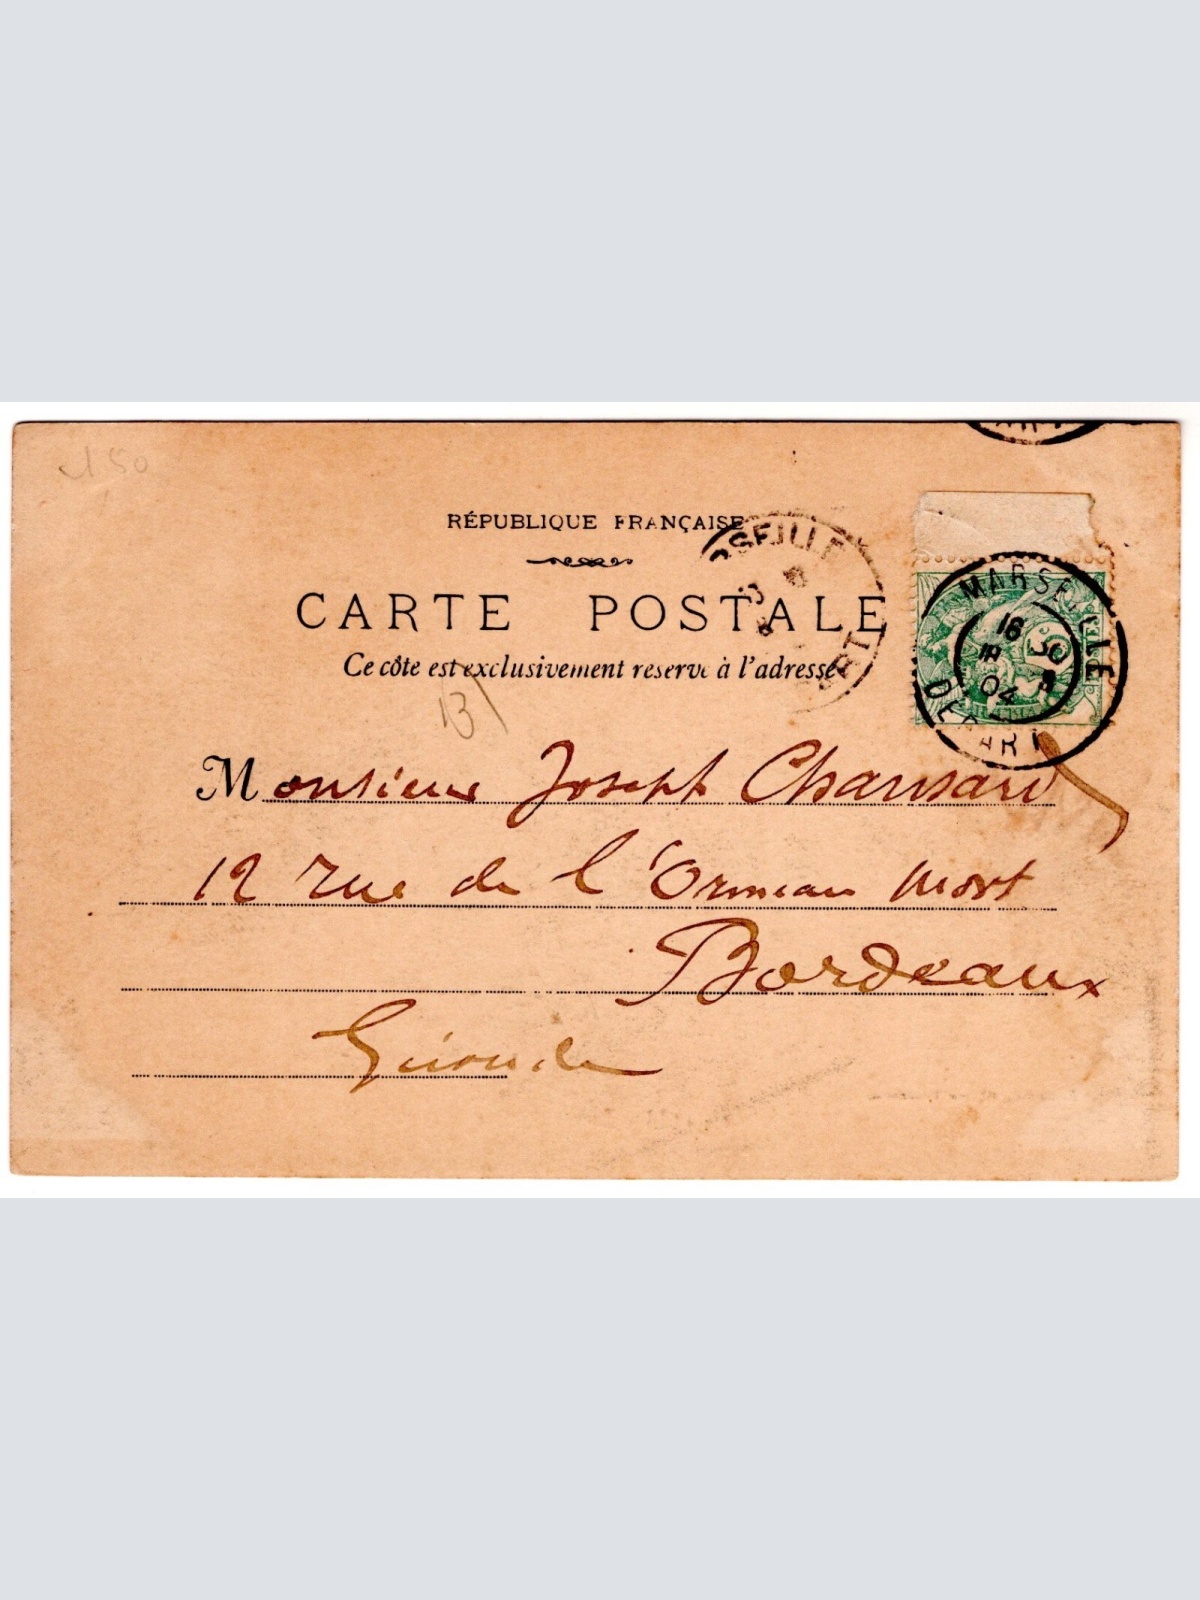 150
RÉPUBLIQUE FRANÇAISE
CARTE POSTALE
Ce côté est exclusivement réservé à l'adresse
13
MARSEILLE
16 30
04
DEPART
Monsieur Joseph Chansard
12 rue de l'Ormeau Mort
Bordeaux
Gironde